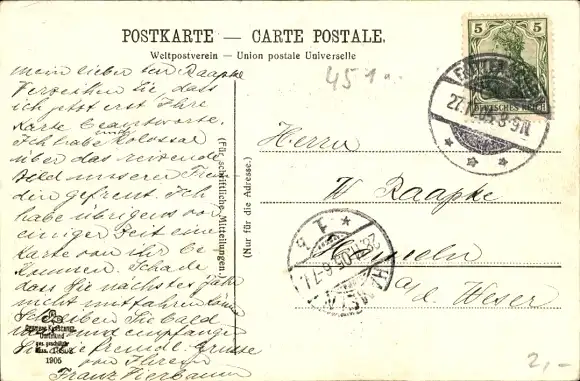 POSTKARTE — CARTE POSTALE.
Weltpostverein — Union postale Universelle
451
5 5
DEUTSCHES REICH
27. 8-9N
mein lieber Herr Raapke
Verzeihen Sie, dass
ich jetzt erst Ihre
Karte beantworte.
Ich habe mich kolossal
über das reizende
Bild unserer
gefreut. Ich
habe übrigens vor
einiger Zeit eine
Karte von ihr be
kommen. Schade
dass Sie nächstes Jahr
nicht mitfahren
Schreiben Sie bald
und empfangen
Sie freundl. Grüsse
von Ihrem
Franz Vierbaum
(Für schriftliche Mitteilungen.)
(Nur für die Adresse.)
Herrn
W Raapke
Hameln
a/d. Weser
05.6-7
1905
2,-